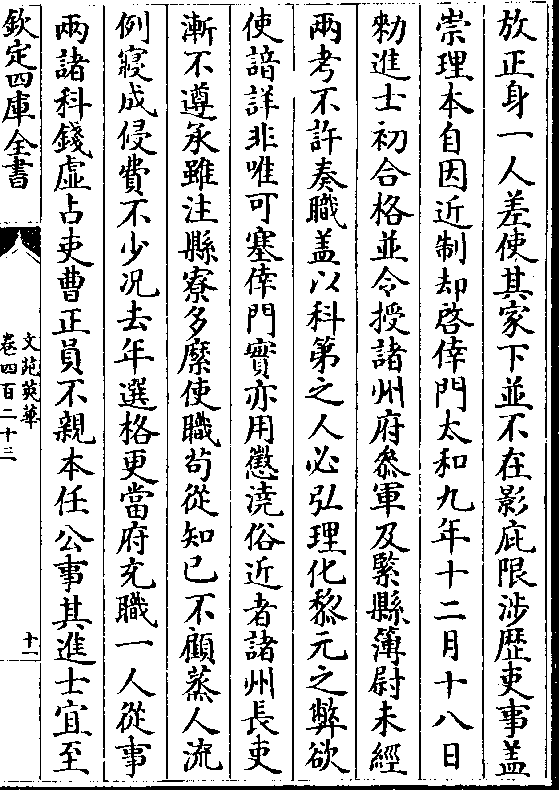 放正身一人差使其家下並不在影庇限涉歴吏事盖
崇理本自因近制却啓倖門太和九年十二月十八日
勅進士初合格並令授諸州府叅軍及緊縣簿尉未經
兩考不許奏職盖以科第之人必弘理化黎元之弊欲
使諳詳非唯可塞倖門實亦用懲澆俗近者諸州長吏
漸不遵承雖注縣寮多縻使職苟從知已不顧蒸人流
例寖成侵費不少况去年選格更當府充職一人從事
兩諸科錢虛占吏曹正員不親本任公事其進士宜至
欽定四庫全書
文苑英華
卷四百二十三
十一